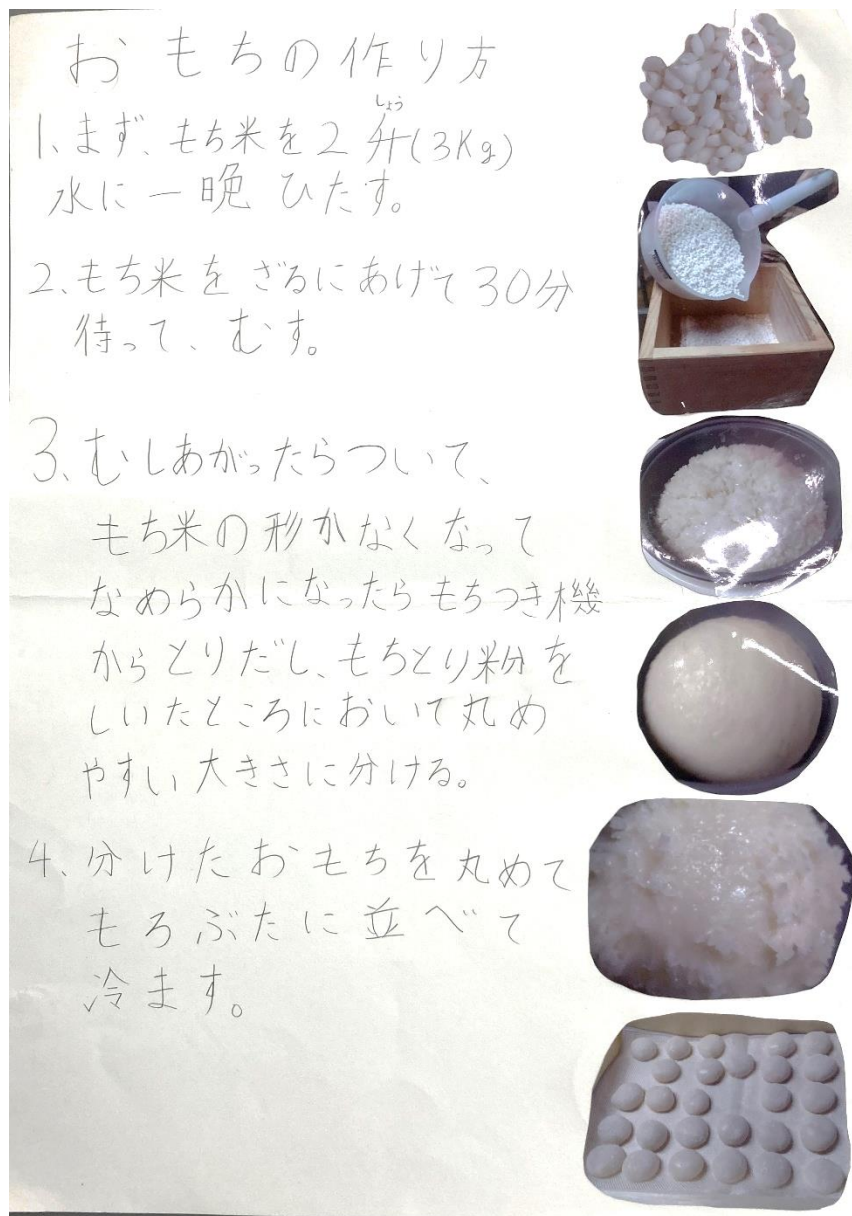 おもちの作り方
1、まず、もち米を2升(3Kg)
しょう
水に一晩ひたす。
2、もち米をざるにあげて30分
待って、むす。
3、むしあがったらついて、
もち米の形がなくなって
なめらかになったらもちつき機
からとりだし、もちとり粉を
しいたところにおいて丸め
やすい大きさに分ける。
4、分けたおもちを丸めて
もろぶたに並べて
冷ます。